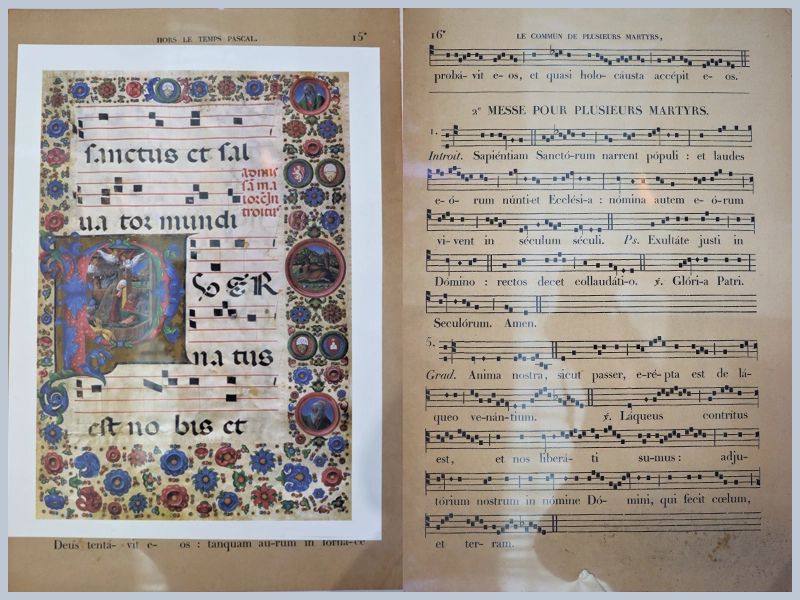 HORS LE TEMPS PASCAL.
15*
sanctus et sal
ad mis
sa ma
ior. In
troitus
ua tor mundi
P V ER
na tus
est no bis et
Deus tentá- vit e- os : tanquam au-rum in forna-ce
16*
LE COMMUN DE PLUSIEURS MARTYRS,
probá- vit e- os, et quasi holo- cáusta accépit e- os.
2e MESSE POUR PLUSIEURS MARTYRS.
1.
Introit. Sapiéntiam Sanctó-rum narrent pópuli : et laudes
e- ó- rum núnti-et Ecclési-a : nómina autem e- ó-rum
vi- vent in séculum séculi. Ps. Exultáte justi in
Dómino : rectos decet collaudáti-o. ℣. Glóri-a Patri.
Seculórum. Amen.
5.
Grad. Anima nostra, sicut passer, e-ré-pta est de lá-
queo ve-nán-tium. ℣. Láqueus contritus
est, et nos liberá- ti su-mus : adju-
tórium nostrum in nómine Dó- mini, qui fecit cœlum,
et ter- ram.